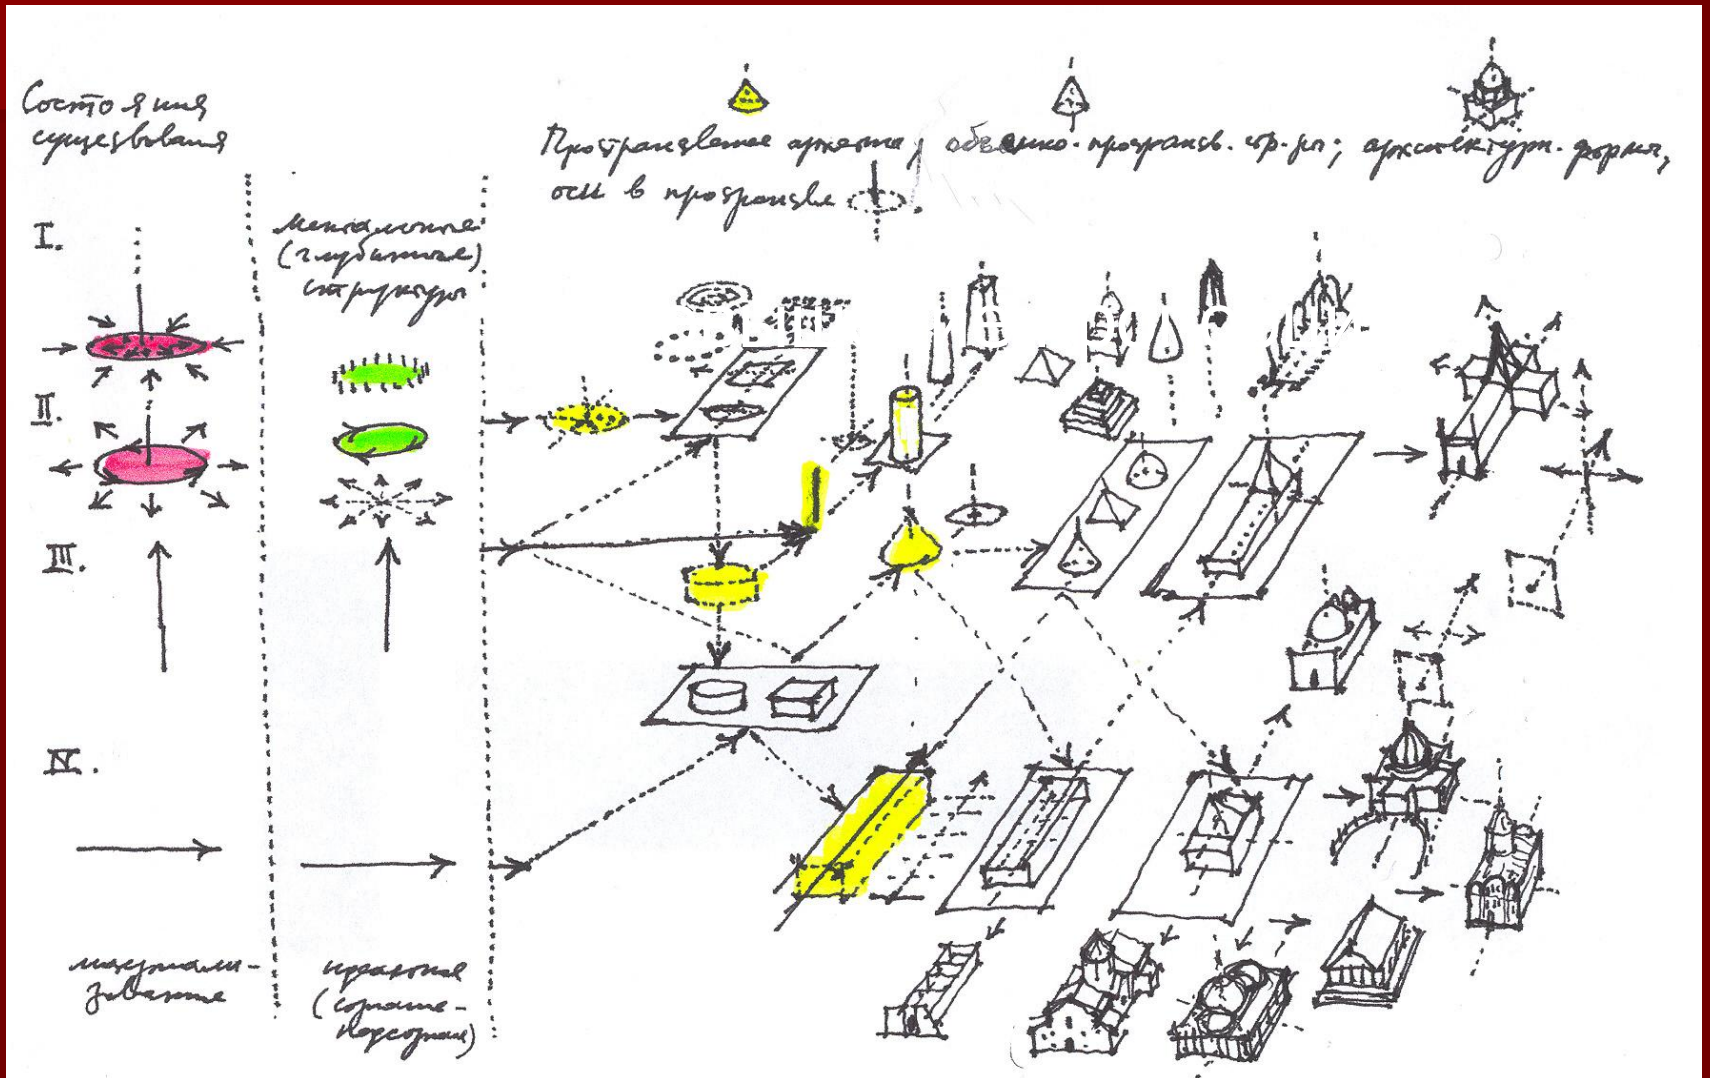 Состояния
существования
Пространственные архетипы, объемно-пространств. стр-ры; архитектурн. формы,
оси в пространстве
I.
ментальные
(глубинные)
структуры
II.
III.
IV.
материали-
зованные
идеальные
(созна-
подсозн)